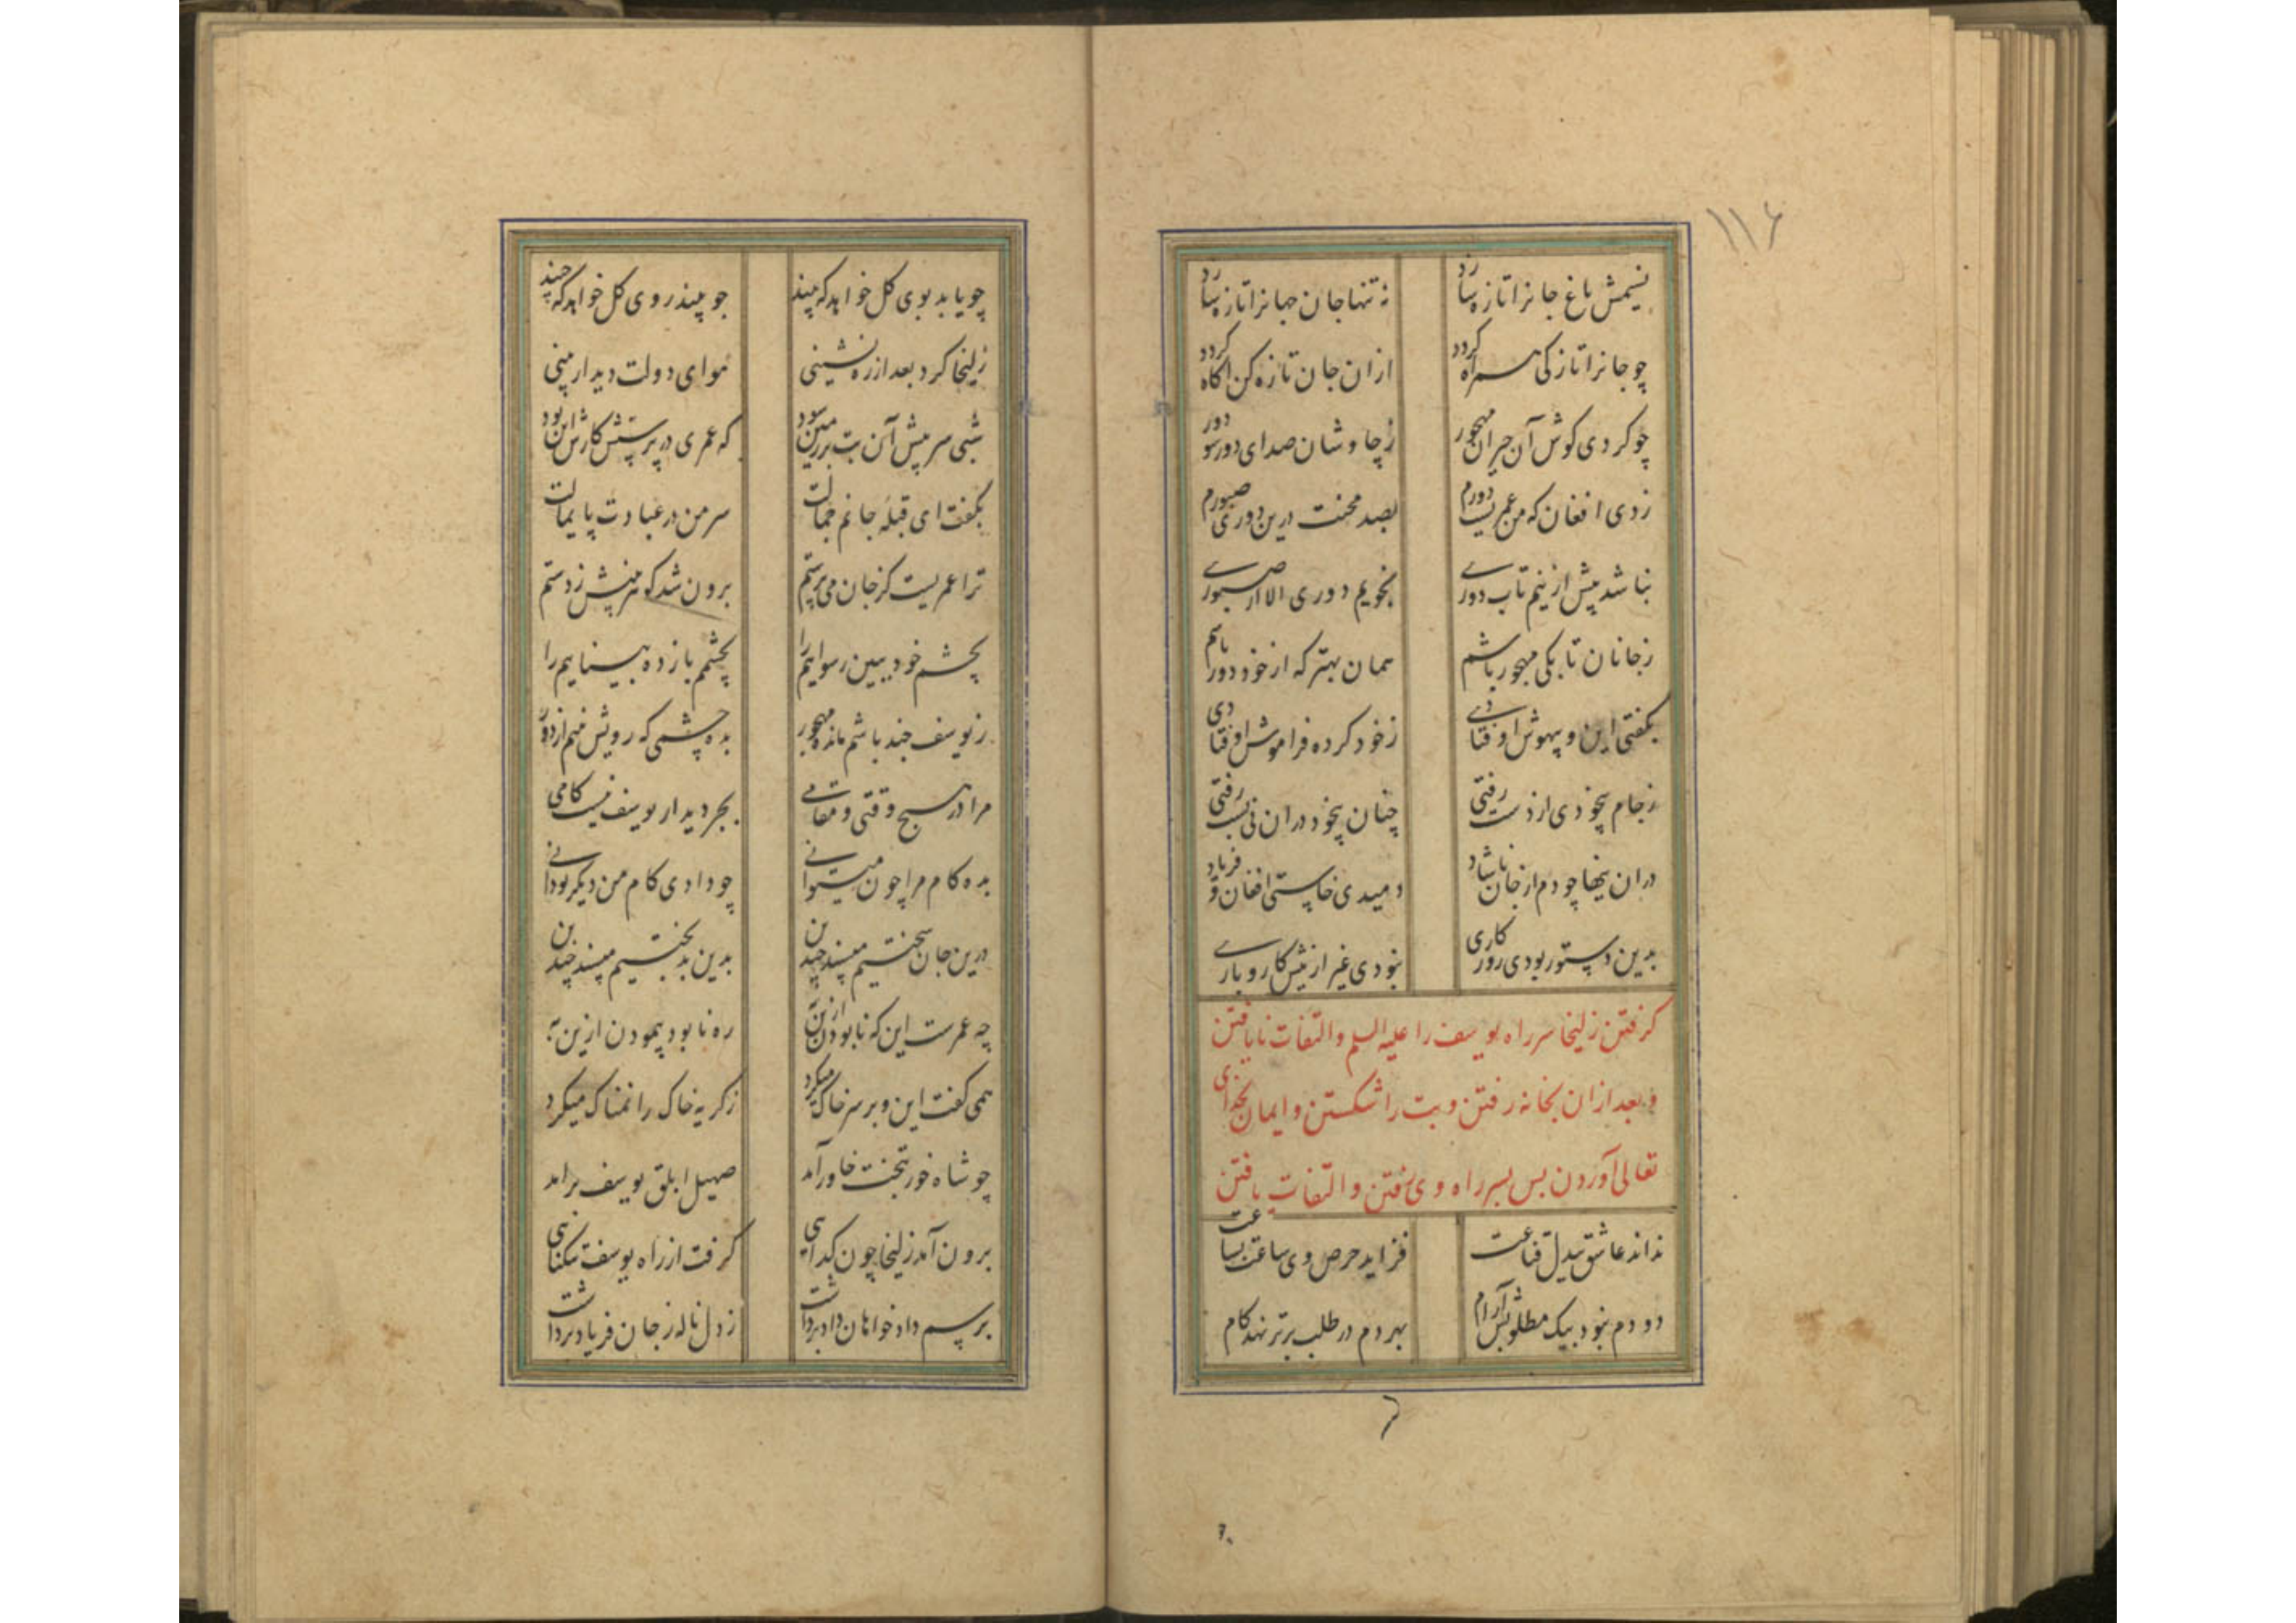 ۱۱۶
نسیمش باغ جانرا تازه سازد نه تنها جان جهانرا تازه سازد
چو جانرا تازکی همراه کردد ازان جان تازه کن اکاه کردد
چو کردی کوش آن حیران مهجور ز چاوشان صدای دور شو دور
زدی افغان که من عمریست دورم بصد محنت درین دوری صبورم
نباشد بیش ازینم تاب دوری نجویم دوری الا از صبوری
ز جانان تا بکی مهجور باشم همان بهتر که از خود دور باشم
بکفتی این و بیهوش اوفتادی ز خود کرده فراموش اوفتادی
ز جام بیخودی از دست رفتی چنان بیخود دران نی بست رفتی
دران نیها چو دم از جان ناشاد دمیدی خاستی افغان و فریاد
بدین دستور بودی روزکاری نبودی غیر ازینش کار و باری
کرفتن زلیخا سر راه یوسف را علیه السلم و التفات نایافتن
و بعد ازان بخانه رفتن و بت را شکستن و ایمان بخدای
تعالی آوردن بس بسر راه وی رفتن و التفات یافتن
نداند عاشق بیدل قناعت فزاید حرص وی ساعت بساعت
دو دم نبود بیک مطلوبش آرام بهر دم در طلب برتر نهد کام
چو یابد بوی کل خواهد که بیند جو بیند روی کل خواهد که چیند
زلیخا کرد بعد از ره نشینی هوای دولت دیدار بینی
شبی سر پیش آن بت بر زمین سود که عمری در پرستش کارش این بود
بکفت ای قبله جانم جمالت سر من در عبادت پایمالت
ترا عمریست کز جان می پرستم برون شد کوهر بینش ز دستم
بچشم خود ببین رسوایم را بچشمم باز ده بیناییم را
ز یوسف چند باشم مانده مهجور بده چشمی که رویش بینم از دور
مرا در هیچ وقتی و مقامی بجز دیدار یوسف نیست کامی
بده کام مرا چون میتوانی چو دادی کام من دیکر تو دانی
درین جان سختیم مپسند چندین بدین بد بختیم مپسند چندین
چه عمرست این که نابودن ازین به ره نابود پیمودن ازین به
همی کفت این و بر سر خاک میکرد ز کریه خاک را نمناک میکرد
چو شاه خور بتخت خاور آمد صهیل ابلق یوسف برامد
برون آمد زلیخا چون کدایی کرفت از راه یوسف تنکنایی
برسم داد خواهان داد برداشت ز دل ناله ز جان فریاد برداشت